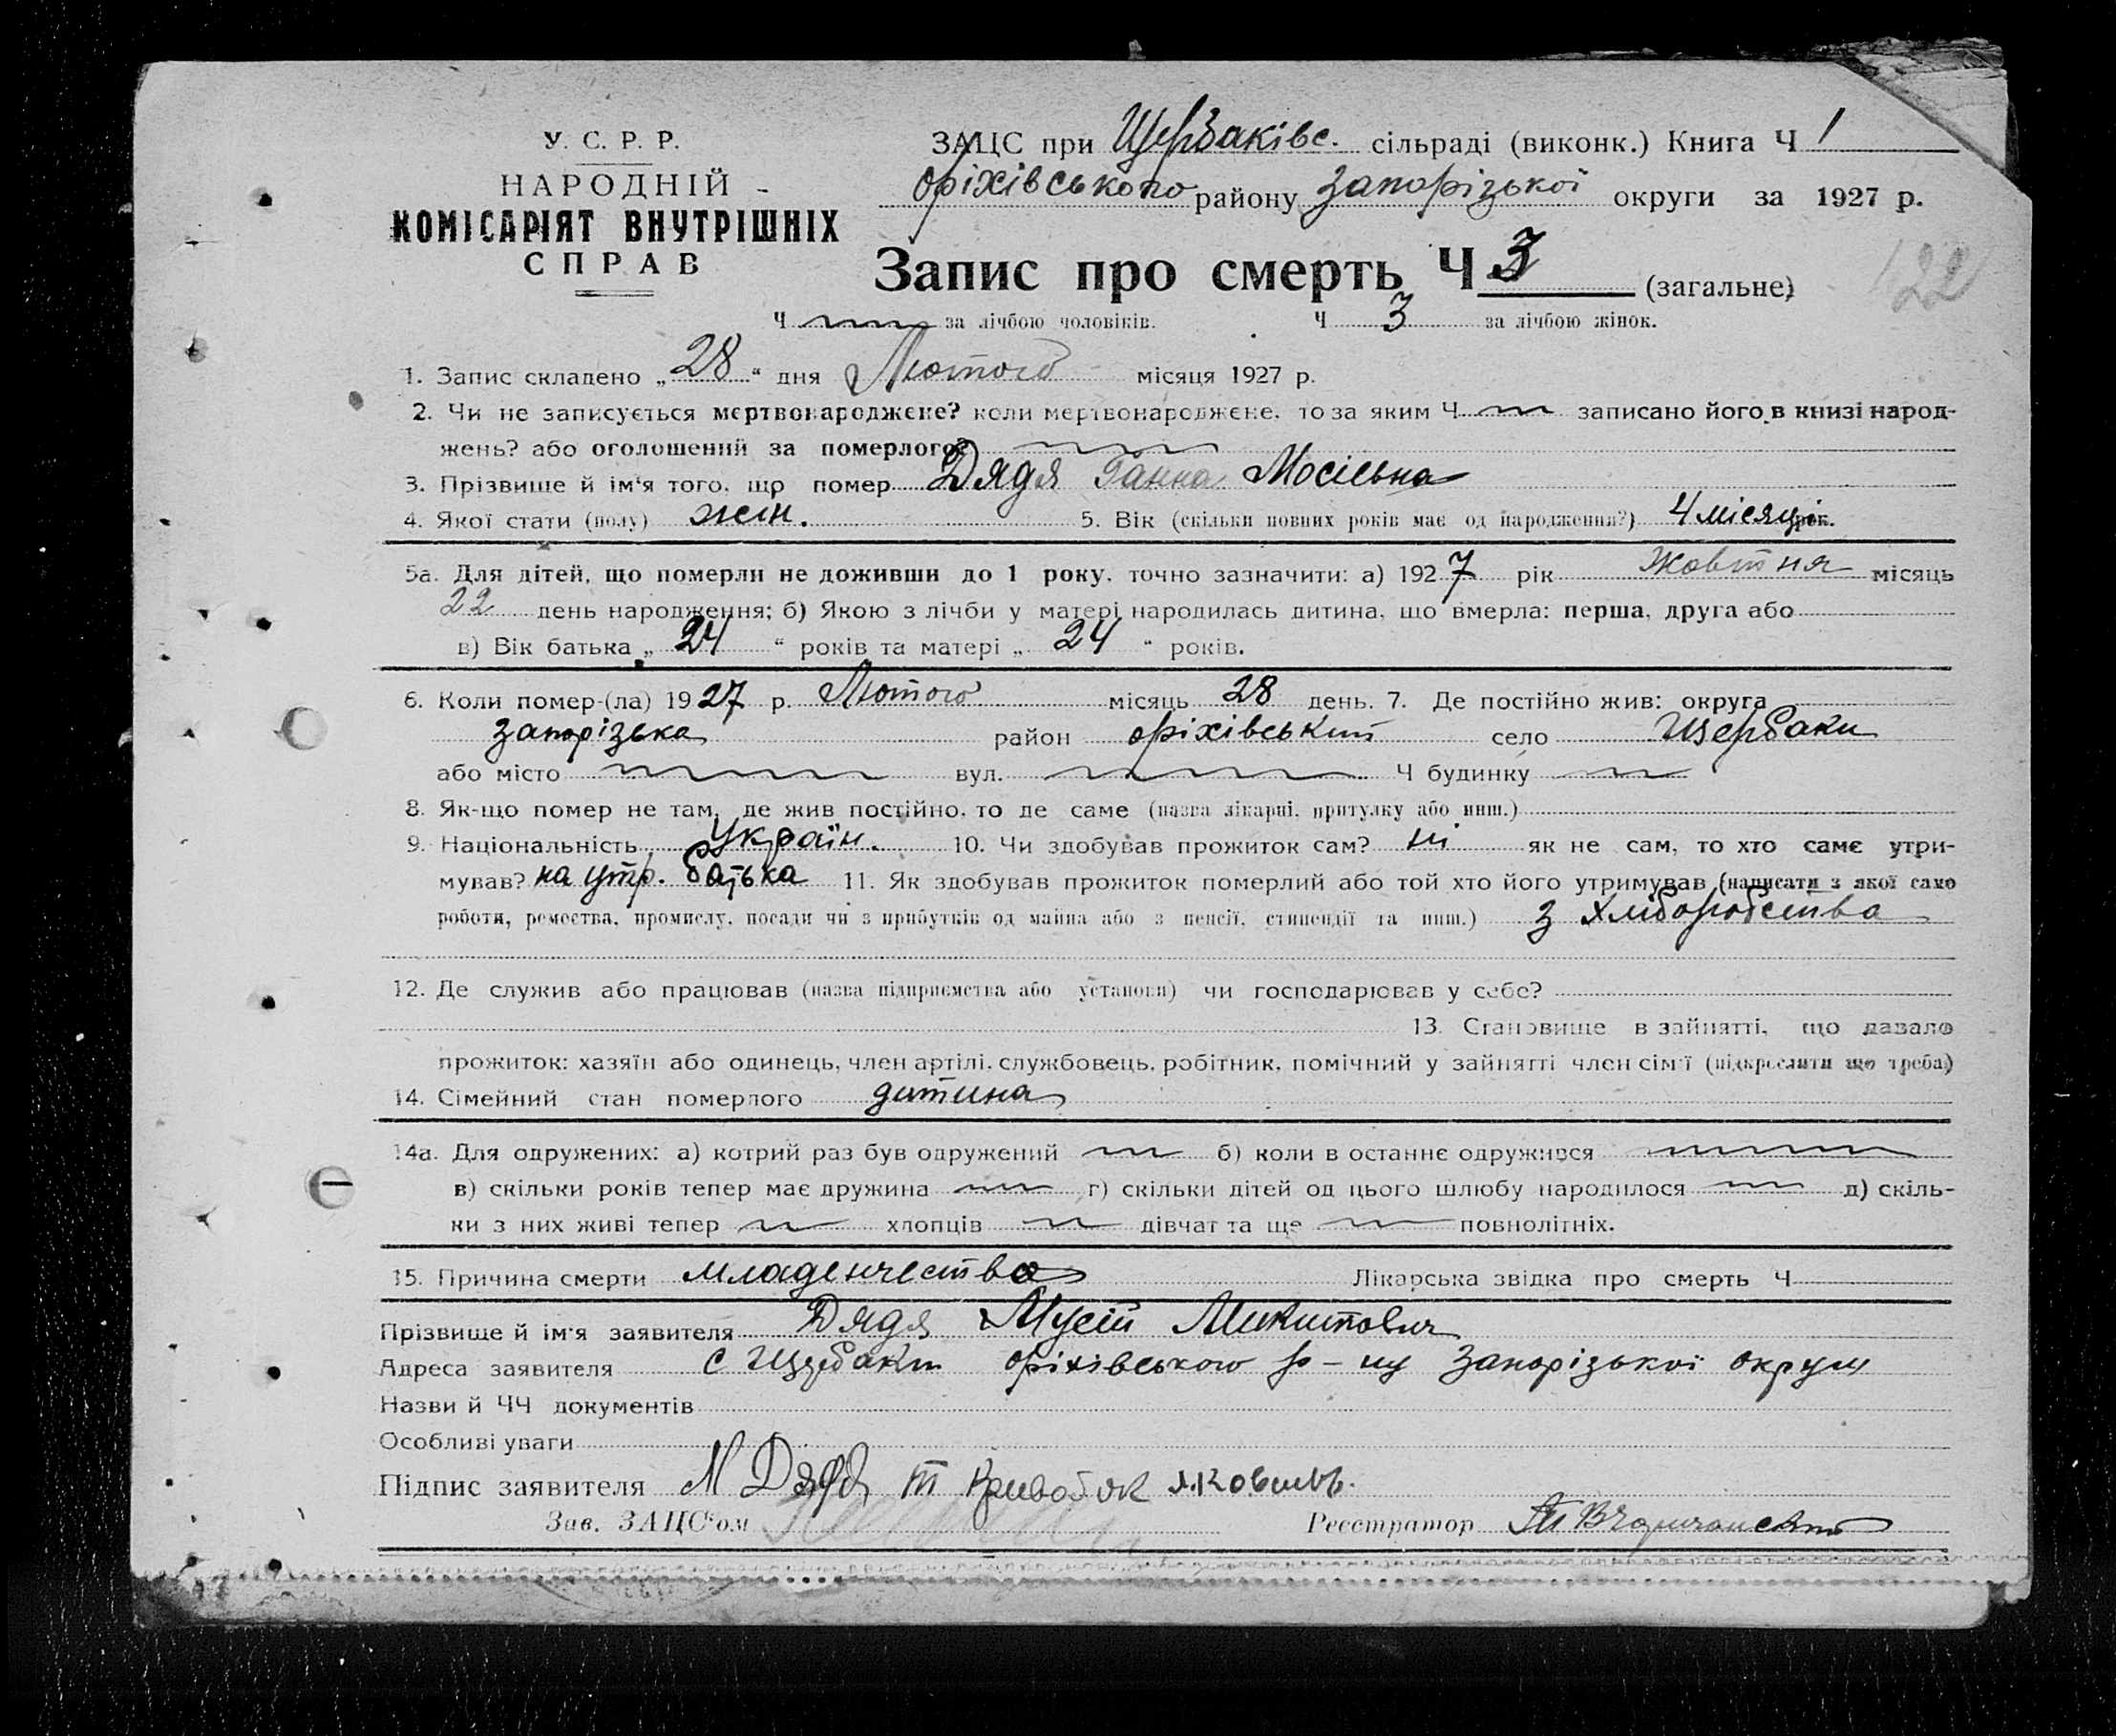 У. С. Р. Р.
НАРОДНІЙ
КОМІСАРІЯТ ВНУТРІШНІХ
СПРАВ
ЗАЦС при Щербаківс. сільраді (виконк.) Книга Ч 1
Оріхівського району Запорізької округи за 1927 р.
Запис про смерть Ч 3 (загальне)
122
Ч за лічбою чоловіків. Ч 3 за лічбою жінок.
1. Запис складено „28“ дня Лютого місяця 1927 р.
2. Чи не записується мертвонароджене? коли мертвонароджене, то за яким Ч записано його в книзі народ-
жень? або оголошений за померлого?
3. Прізвище й ім'я того, що помер Дядя Ганна Мосієвна
4. Якої стати (полу) жін. 5. Вік (скільки повних років має од народження?) 4 місяці рок.
5а. Для дітей, що померли не доживши до 1 року, точно зазначити: а) 1927 рік Жовтня місяць
22 день народження; б) Якою з лічби у матері народилась дитина, що вмерла: перша, друга або
в) Вік батька „24“ років та матері „24“ років.
6. Коли помер-(ла) 1927 р. Лютого місяць 28 день. 7. Де постійно жив: округа
Запорізька район Оріхівський село Щербаки
або місто вул. Ч будинку
8. Як-що помер не там, де жив постійно, то де саме (назва лікарні, притулку або инш.)
9. Національність Україн. 10. Чи здобував прожиток сам? ні як не сам, то хто саме утри-
мував? на утр. батька 11. Як здобував прожиток померлий або той хто його утримував (написати з якої само
роботи, ремества, промислу, посади чи з прибутків од майна або з пенсії, стипендії та инш.) з хліборобства
12. Де служив або працював (назва підприємства або установи) чи господарював у себе?
13. Становище в зайнятті, що давало
прожиток: хазяїн або одинець, член артілі, службовець, робітник, помічний у зайнятті член сім'ї (підкреслити що треба)
14. Сімейний стан померлого дитина
14а. Для одружених: а) котрий раз був одружений б) коли в останнє одружився
в) скільки років тепер має дружина г) скільки дітей од цього шлюбу народилося д) скіль-
ки з них живі тепер хлопців дівчат та ще повнолітніх.
15. Причина смерти младенчество Лікарська звідка про смерть Ч
Прізвище й ім'я заявителя Дядя Мусій Микитович
Адреса заявителя с Щербаки Оріхівського р-ну Запорізької округи
Назви й ЧЧ документів
Особливі уваги
Підпис заявителя М Дядя
Зав. ЗАЦС'ом Реєстратор